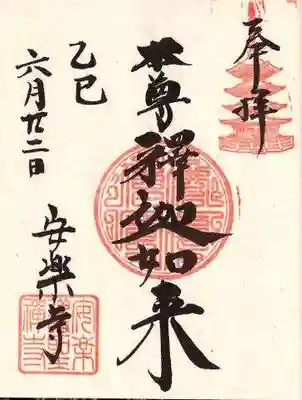 奉拝
本尊釋迦如来
乙巳
六月廿二日
安樂寺